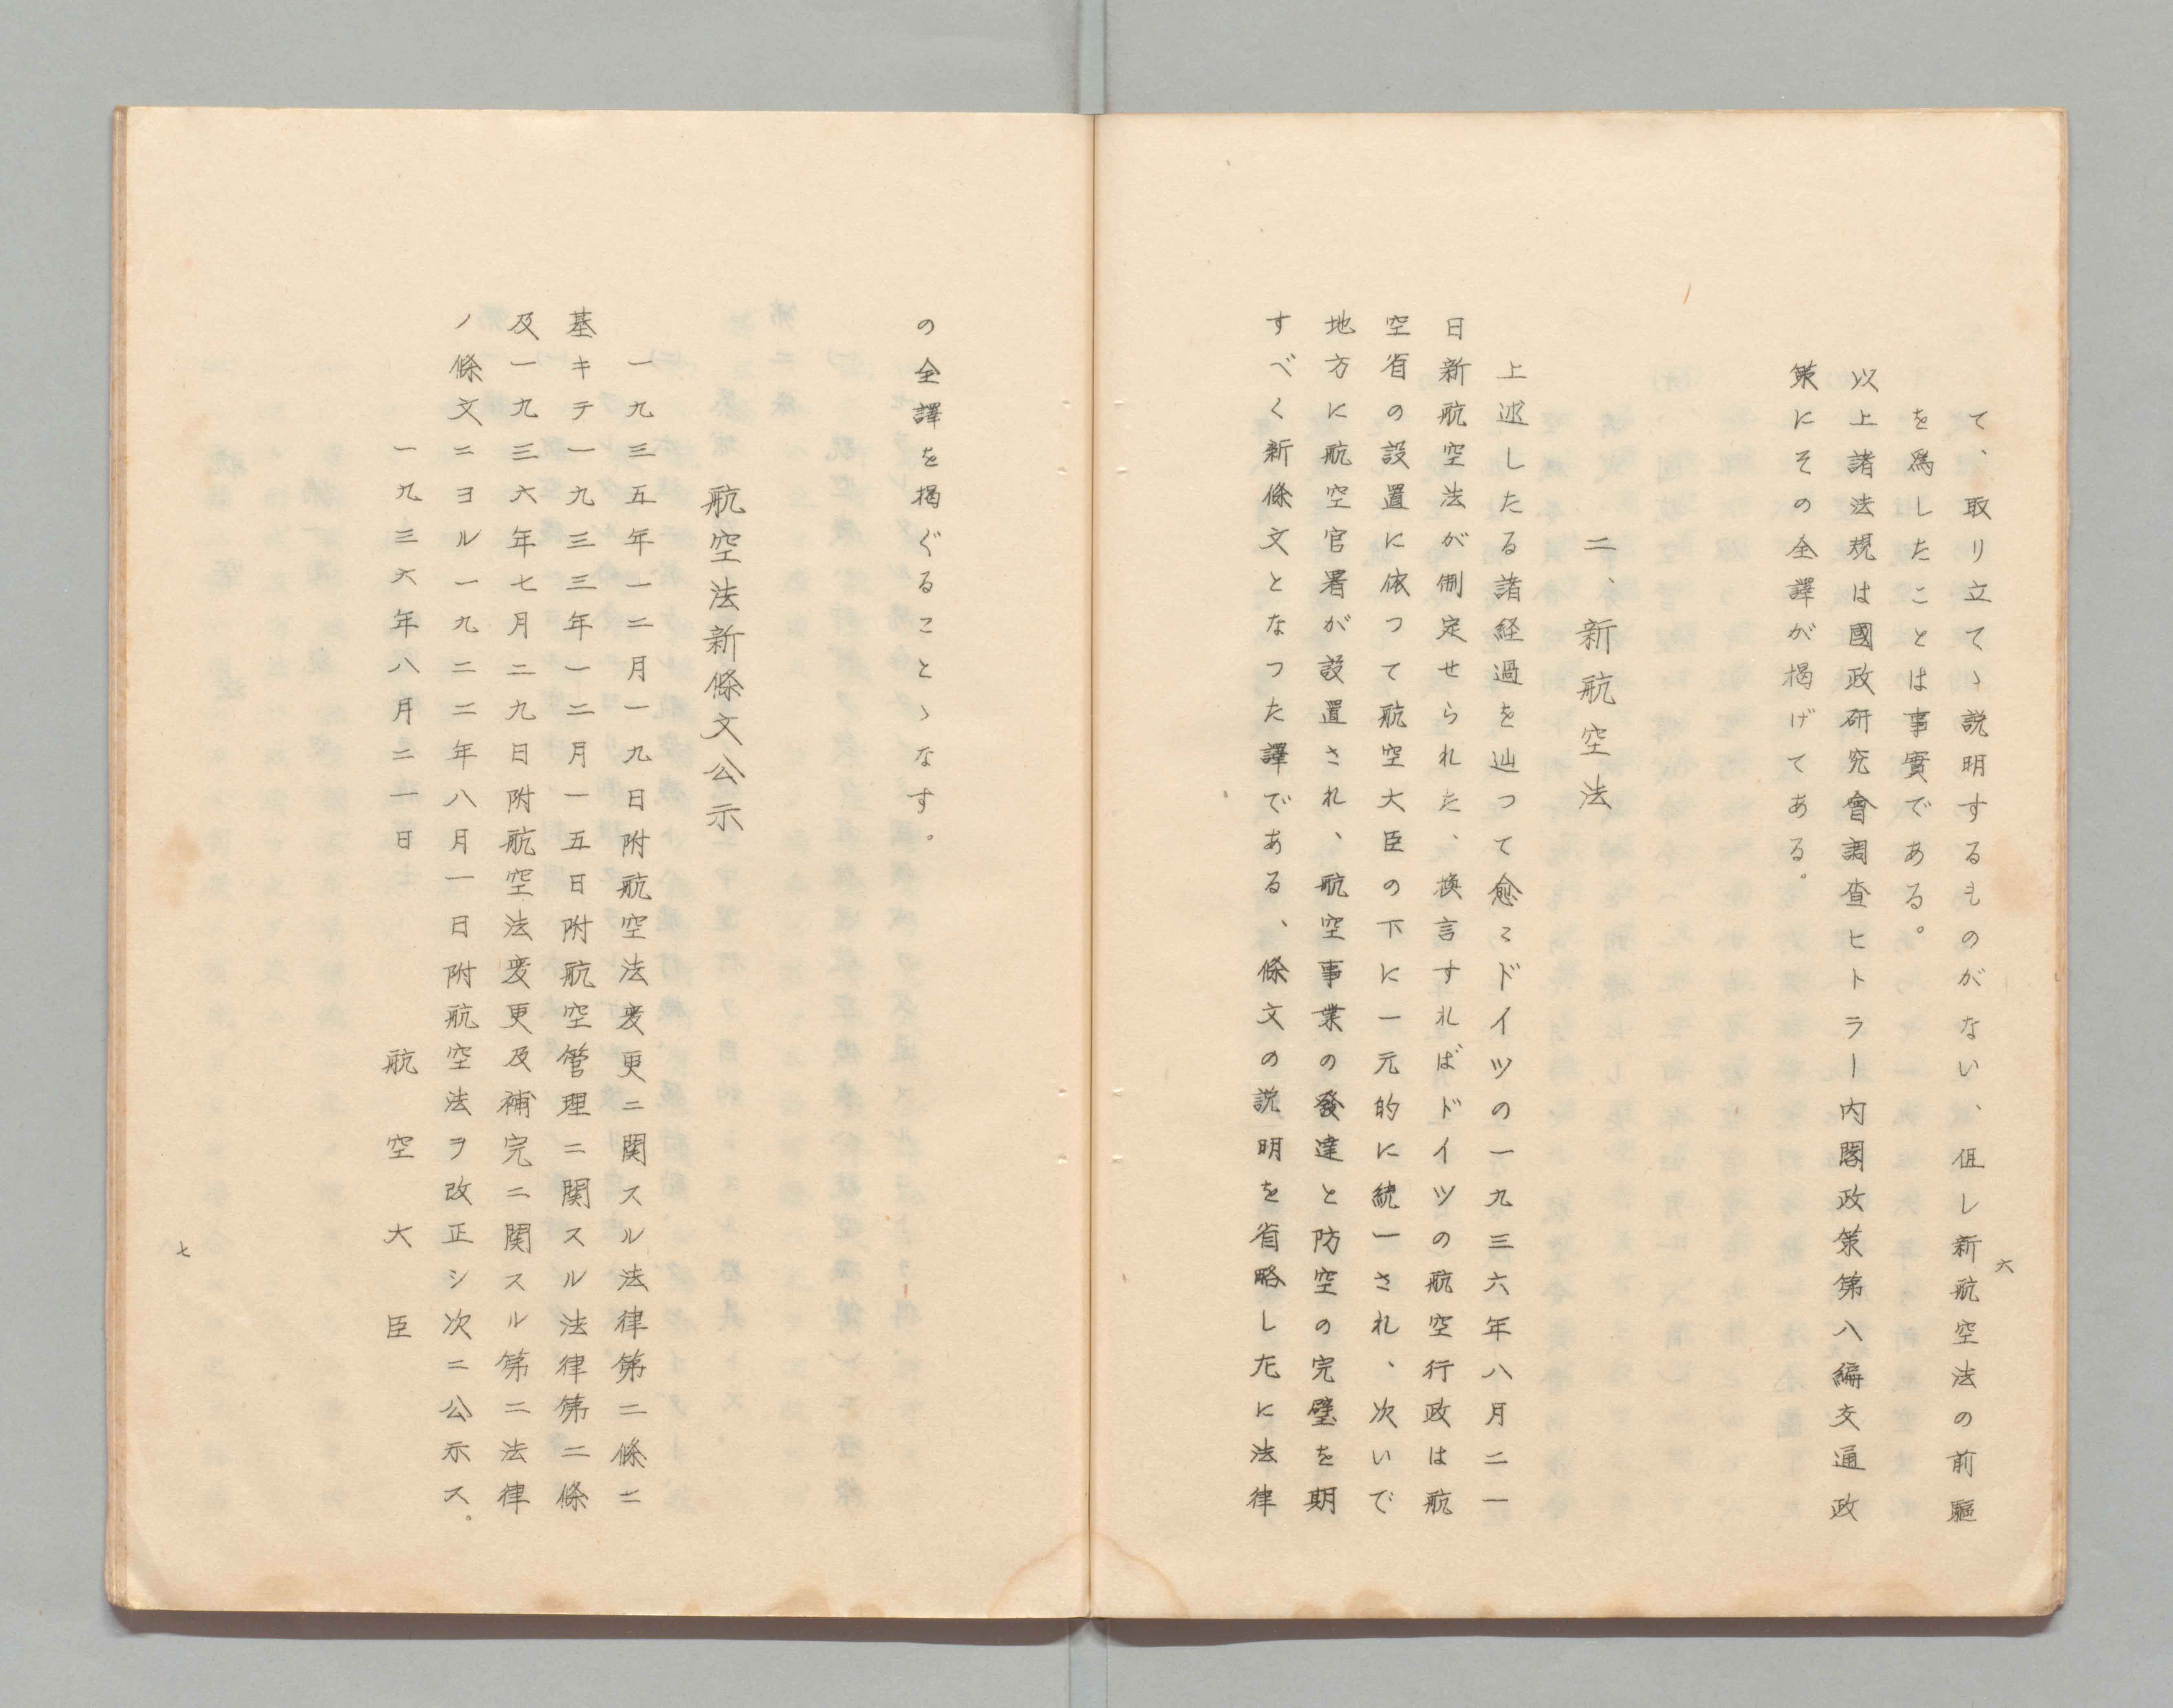 て、取り立てゝ説明するものがない、但し新航空法の前驅
を爲したことは事實である。
以上諸法規は國政研究會調査ヒトラー内閣政策第八編交通政
策にその全譯が掲げてある。
二、新航空法
上述したる諸経過を辿つて愈〻ドイツの一九三六年八月二一
日新航空法が制定せられた、換言すればドイツの航空行政は航
空省の設置に依つて航空大臣の下に一元的に統一され、次いで
地方に航空官署が設置され、航空事業の發達と防空の完璧を期
すべく新條文となつた譯である、條文の説明を省略し左に法律
六
の全譯を掲ぐることゝなす。
航空法新條文公示
一九三五年一二月一九日附航空法変更ニ関スル法律第二條ニ
基キテ一九三三年一二月一五日附航空管理ニ関スル法律第二條
及一九三六年七月二九日附航空法変更及補完ニ関スル第二法律
ノ條文ニヨル一九二二年八月一日附航空法ヲ改正シ次ニ公示ス。
一九三六年八月二一日
航空大臣
七